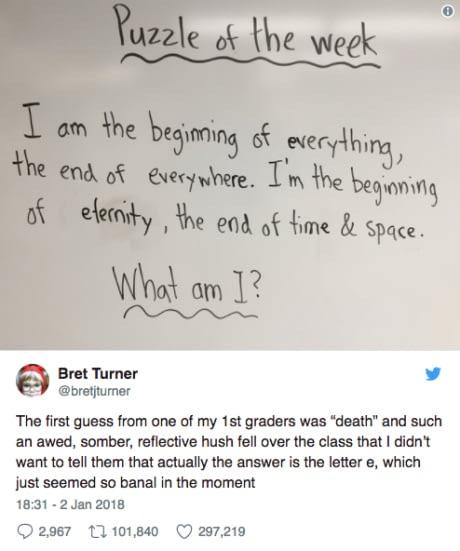 Puzzle of the week
I am the beginning of everything,
the end of everywhere. I'm the beginning
of eternity, the end of time & space.
What am I?
Bret Turner
@bretjturner
The first guess from one of my 1st graders was “death” and such
an awed, somber, reflective hush fell over the class that I didn't
want to tell them that actually the answer is the letter e, which
just seemed so banal in the moment
18:31 - 2 Jan 2018
2,967 101,840 297,219